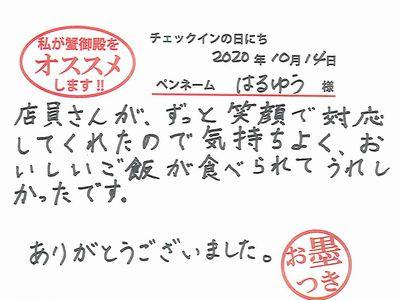 私が蟹御殿を
オススメ
します!!
チェックインの日にち
2020年10月14日
ペンネーム はるゆう 様
店員さんが、ずっと笑顔で対応
してくれたので気持ちよく、お
いしいご飯が食べられてうれし
かったです。
ありがとうございました。
お墨
つき